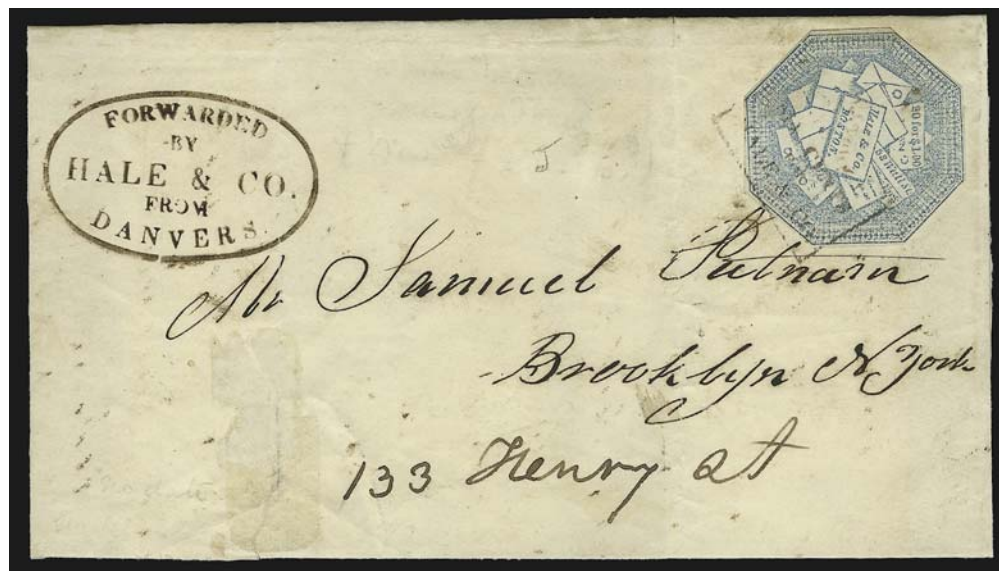 FORWARDED
BY
HALE & CO.
FROM
DANVERS.
HALE & CO.
BOSTON.
20 for $1.00
Mr Samuel Putnam
Brooklyn N York
133 Henry St